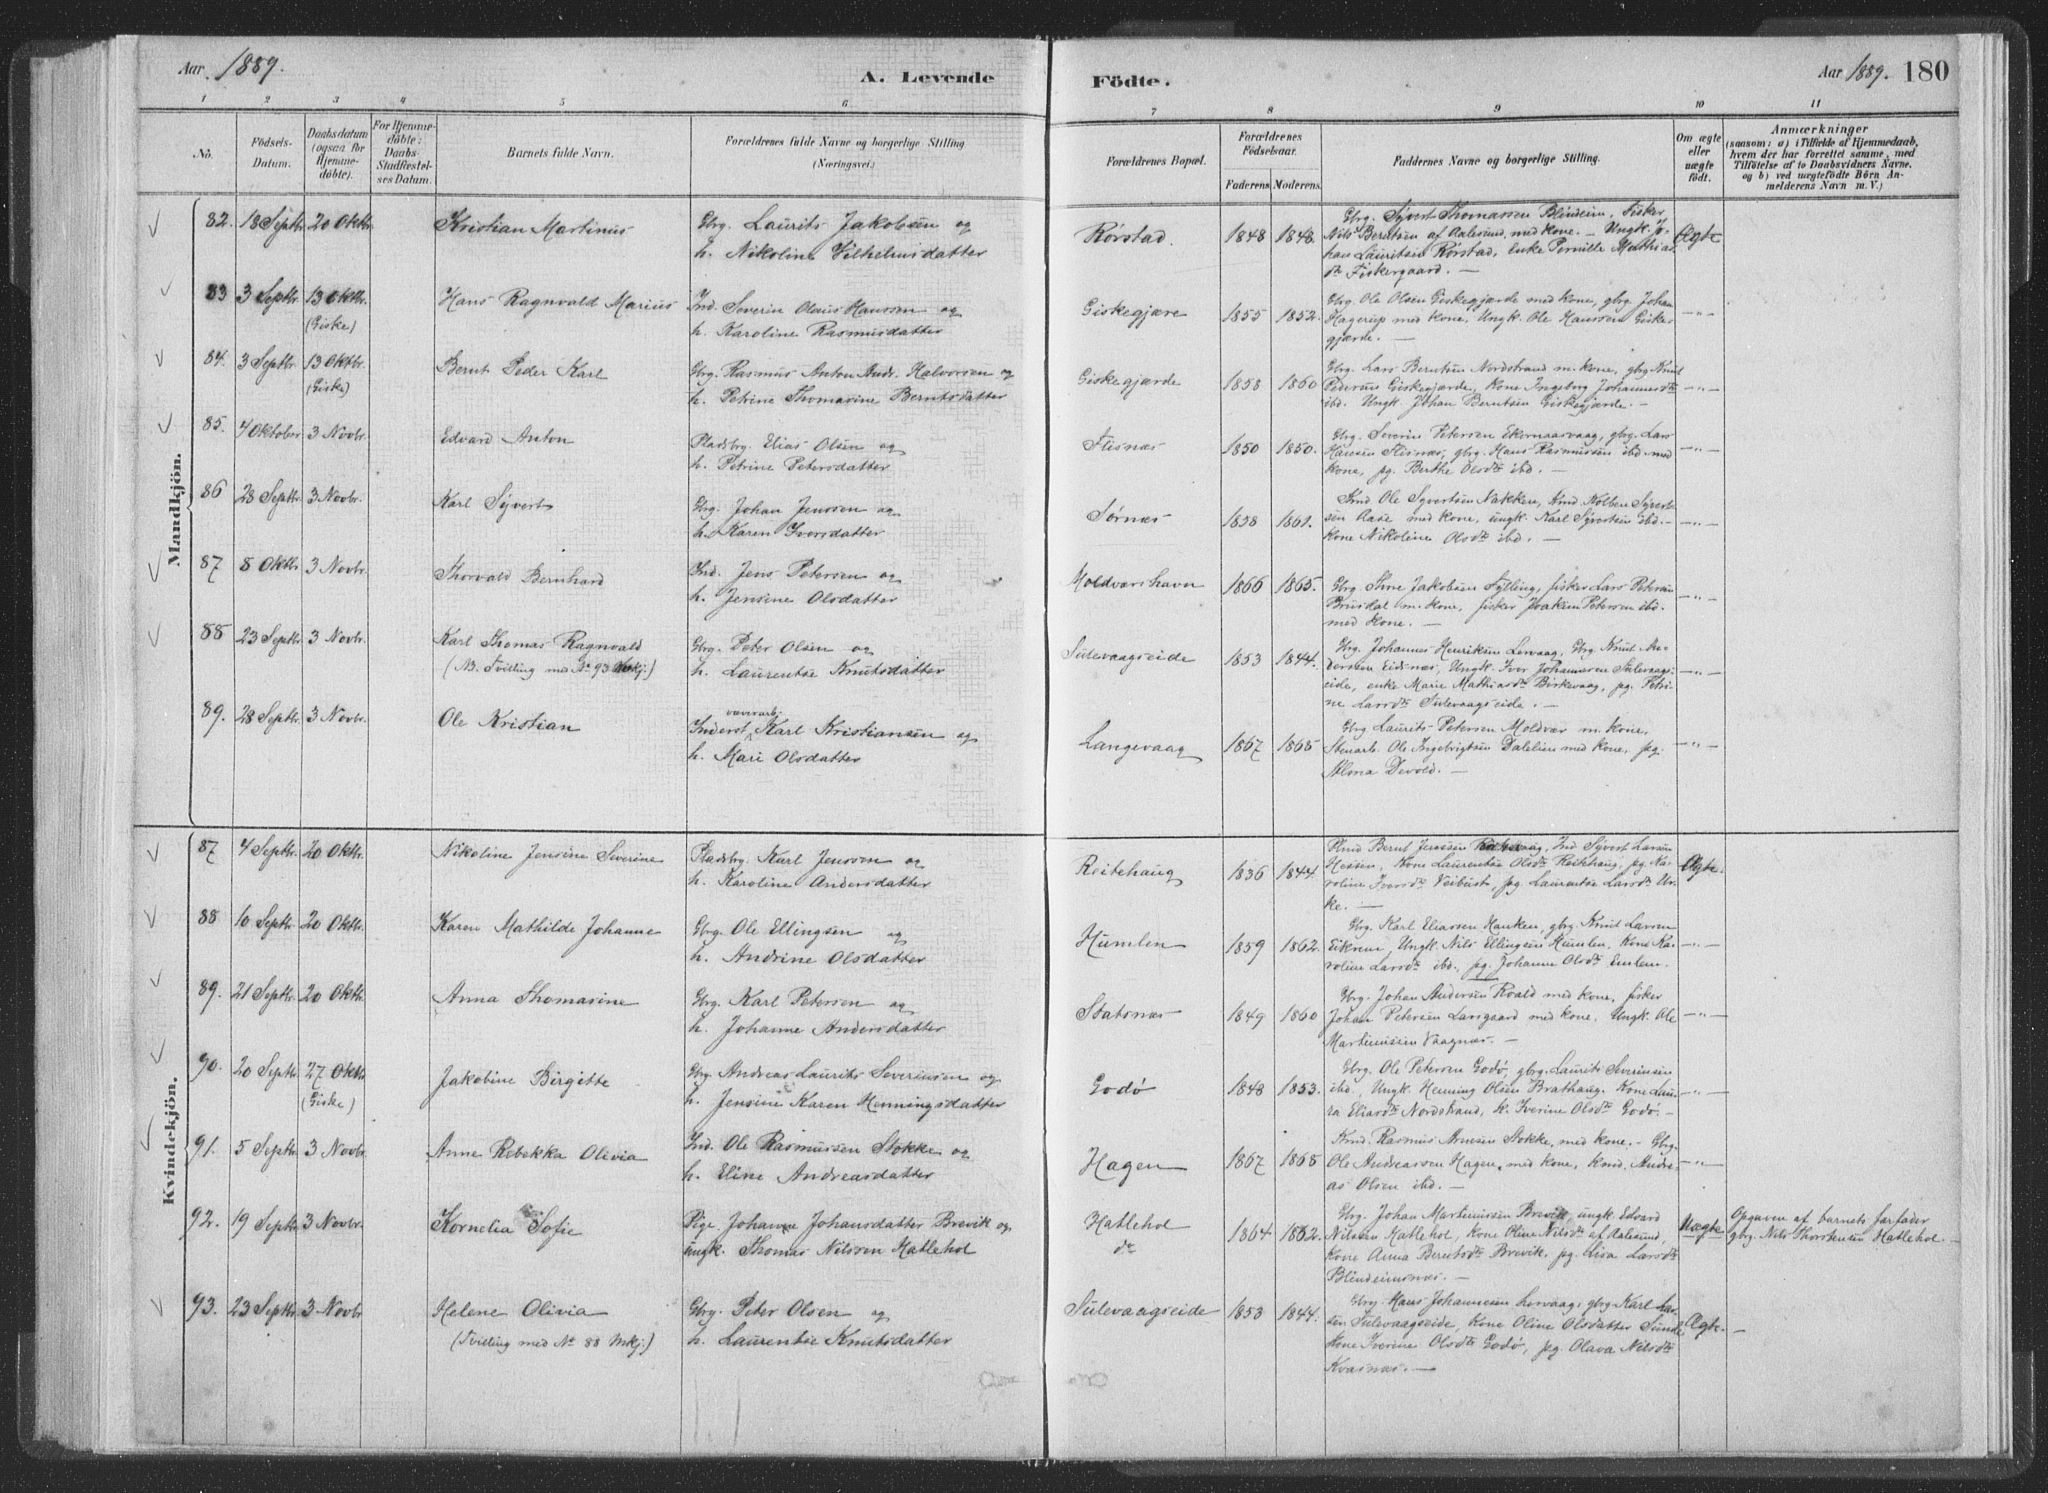 Aar 1889.
A. Levende
Födte.
Aar 1889. 180
1 2 3 4 5 6 7 8 9 10 11
No.
Födsels-Datum.
Daabsdatum (ogsaa for Hjemmedöbte).
For Hjemmedöbte: Daabs-Stadfæstelses Datum.
Barnets fulde Navn.
Forældrenes fulde Navne og borgerlige Stilling (Næringsvei.)
Forældrenes Bopæl.
Forældrenes Födselsaar.
Faderens Moderens.
Faddernes Navne og borgerlige Stilling.
Om ægte eller uægte födt.
Anmærkninger
(saasom: a) i Tilfælde af Hjemmedaab, hvem der har forrettet samme, med Tilföielse af to Daabsvidners Navne, og b) ved uægtefödte Börn Anmelderens Navn m. V.)
Mandkjön.
82. 18 Septbr. 20 Oktbr. Kristian Martinus
Gbrg. Laurits Jakobsen og
h. Nikoline Vilhelmsdatter
Rørstad. 1848 1848.
Gbrg. Syvert Thomassen Blindeim, Fisker
Nils Berntsen af Aalesund, med kone. – Ungk. Jo-
han Lauritsen Rørstad, enke Pernille Mathias-
dtr Fiskergaard. –
Ægte
83 3 Septbr. 13 Oktbr. (Giske) Hans Ragnvald Marius
Ind. Severin Olaus Hanssen og
h. Karoline Rasmusdatter
Giskegjære 1855 1852.
Gbrg. Ole Olsen Giskegjærde med kone, gbrg. Johan
Hagerup med kone, Ungk. Ole Hanssen Giske-
gjærde. –
–"–
84. 3 Septbr. 13 Oktbr. (Giske) Bernt Peder Karl
Gbrg. Rasmus Anton Andr. Halvorsen og
h. Petrine Thomasine Berntsdatter
Giskegjærde 1858 1860
Gbrg. Lars Berntsen Nordstrand m. kone, gbrg. Knut
Pedersen Giskegjærde, kone Ingeborg Johannesdtr
ibd. Ungk. Johan Berntsen Giskegjærde. –
–"–
85. 4 Oktober 3 Novbr. Edvard Anton
Pladsbrg. Elias Olsen og
h. Petrine Petersdatter
Flisnæs 1850 1850.
Gbrg. Severin Petersen Ekornaasvaag, gbrg. Lars
Hansen Flisnæs, gbrg. Hans Rasmussen ibd. med
kone, pg. Berthe Olsdtr ibd. –
–"–
86 23 Septbr. 3 Novbr. Karl Syvert
Gbrg. Johan Jenssen og
h. Karen Iversdatter
Sørnæs 1858 1861.
Knud Ole Syvertsen Nakken, Knud Kolben Syvert-
sen Aase med kone, ungk. Karl Syvertsen ibd. –
Kone Nikoline Olsdtr ibd. –
–"–
87 8 Oktbr. 3 Novbr. Thorvald Bernhard
Ind. Jens Petersen og
h. Jensine Olsdatter
Moldværshavn 1866 1865.
Gbrg. Sine Jakobsen Fylling, fisker Lars Petersen
Brusdal m. kone, fisker Joakim Petersen ibd.
med kone. –
–"–
88 23 Septbr. 3 Novbr. Karl Thomas Ragnvald
(NB. Tvilling med No 93 Kvkj.)
Gbrg. Peter Olsen og
h. Laurentse Knutsdatter
Sulevaagseide 1853 1844.
Gbrg. Johannes Henriksen Lervaag, Gbrg. Knut An-
dersen Eidsnæs, Ungk. Iver Johannesen Sulevaags-
eide, enke Marie Mathiasdtr Birkevaag, pg. Petri-
ne Larsdtr Sulevaagseide. –
–"–
89. 28 Septbr. 3 Novbr. Ole Kristian
væverarb.
Inderst Karl Kristiansen og
h. Mari Olsdatter
Langevaag 1867 1865
Gbrg Laurits Petersen Moldvær m. kone,
Stenarb. Ole Ingebrigtsen Dalelien med kone, pg.
Alma Devold. –
–"–
Kvindekjön.
87 4 Septbr. 20 Oktbr. Nikoline Jensine Severine
Pladsbrg. Karl Jenssen og
h. Karoline Andersdatter
Reitehaug 1836 1844.
Knud Bernt Jenssen, Ind Syvert Larsen
Hessen, Kone Laurentse Olsdtr Reitehaug, pg. Ka-
roline Iversdtr Veibust, pg. Laurentse Larsdtr Ur-
ke. –
Ægte.
88 10 Septbr. 20 Oktbr. Karen Mathilde Johanne
Gbrg. Ole Ellingsen og
h. Andrine Olsdatter
Humlen 1859 1862.
Gbrg. Karl Eliassen Hanken, gbrg. Knut Larsen
Eikrem, Ungk. Nils Ellingsen Humlen, Kone Ka-
roline Larsdtr ibd., pg. Johanne Olsdtr Emlem.
–"–
89. 21 Septbr. 20 Oktbr. Anna Thomasine
Gbrg. Karl Petersen og
h. Johanne Andersdatter
Statsnæs 1849 1860
Gbrg. Johan Andersen Roald med kone, fisker
Johan Petersen Langaard med kone. Ungk. Ole
Martinussen Vaagnæs. –
–"–
90. 20 Septbr. 27 Oktbr. (Giske) Jakobine Birgitte
Gbrg. Andreas Laurits Severinsen og
h. Jensine Karen Henningsdatter
Godø 1848 1853.
Gbrg. Ole Petersen Godø, gbrg. Laurits Severinsen
ibd., Ungk. Henning Olsen Brathaug. Kone Lau-
ra Eliasdtr Nordstrand, k. Iverine Olsdtr Godø. –
–"–
91. 5 Septbr. 3 Novbr. Anne Rebekka Olivia
Ind. Ole Rasmussen Stokke og
h. Eline Andreasdatter
Hagen 1867 1868
Knud. Rasmus Arnesen Stokke, med kone. – Gbrg.
Ole Andreassen Hagen, med kone, Knud. Andre-
as Olsen ibd. –
–"–
92. 19 Septbr. 3 Novbr. Kornelia Sofie
Pige Johanne Johansdatter Brevik og
ungk. Thomas Nilssen Hatlehol
Hatlehol
dtr
1864 1862.
Gbrg. Johan Martinussen Brevik, ungk. Edvard
Nilssen Hatlehol, Kone Oline Nilsdtr af Aalesund,
Kone Anna Berntsdtr Brevik. pg. Lisa Larsdtr
Blindeimsnæs. –
Uægte
Opgaven af barnets farfader
gbrg. Nils Thorsteinsen Hatlehol. –
93. 23 Septbr. 3 Novbr. Helene Olivia
(Tvilling med No 88 Mkj.)
Gbrg. Peter Olsen og
h. Laurentse Knutsdatter
Sulevaagseide 1853 1844.
Gbrg. Hans Johannesen Lervaag, gbrg. Karl Lar-
sen Sulevaagseide, Kone Oline Olsdatter Sunde
Kone Iverine Olsdtr Godø, pg. Olava Nilsdtr
Kvasnæs. –
Ægte. –